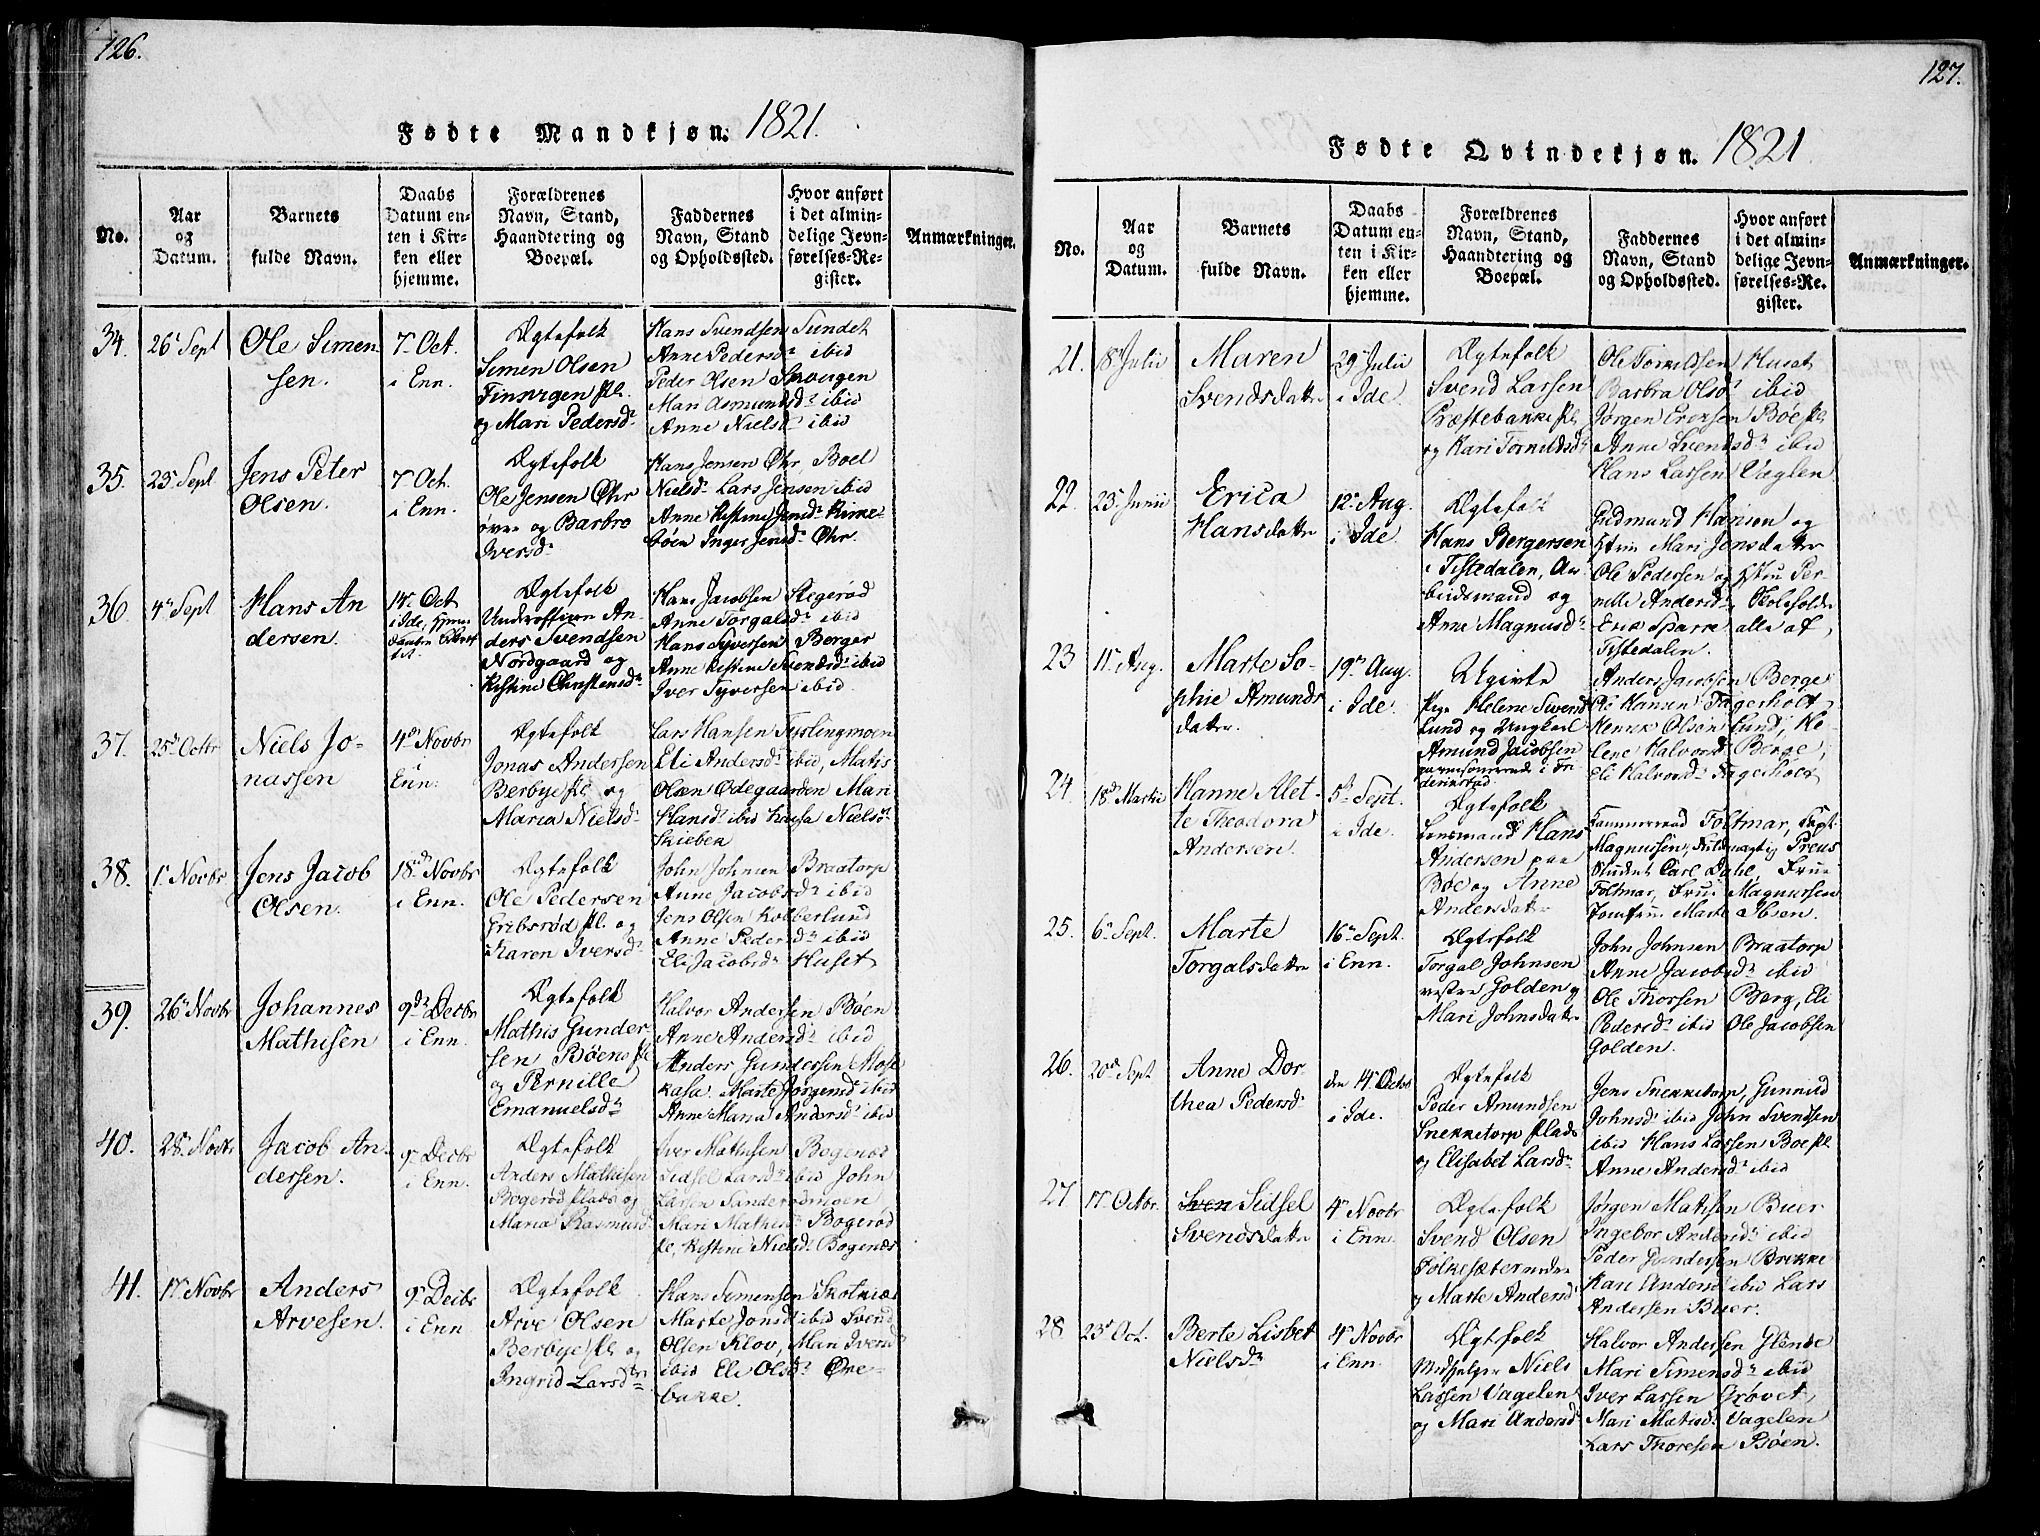 126.
Fødte Mandkjøn. 1821.
No.
Aar
og
Datum.
Barnets
fulde Navn.
Daabs
Datum en-
ten i Kir-
ken eller
hjemme.
Forældrenes
Navn, Stand,
Haandtering og
Boepæl.
Faddernes
Navn, Stand
og Opholdssted.
Hvor anført
i det almin-
delige Jevn-
førelses-Re-
gister.
Anmærkninger.
34.
26 Sept
Ole Simen
sen.
7 Oct.
i Enn.
Ægtefolk
Simen Olsen
og Mari Pedersd.
Hans Svendsen Sundet
Anne Pedersd. ibid
Peder Olsen
Mari Asmundsd. ibid
Anne Nielsd ibid
35.
23 Sept
Jens Peter
Olsen.
7 Oct.
i Enn.
Ægtefolk
Ole Jensen Øhr
øvre og Barbro
Iversd.
Hans Jensen Øhr, Boel
Nielsd. Lars Jensen ibid
Anne Kistine Jensd. Kirke-
böen Inger Jensd. Øhr.
36.
4 Sept
Hans An
dersen.
14 Oct
i Ide,
Ægtefolk
Underofficer An-
ders Svendsen
Nordgaard og
Kistine Christensd.
Hans Jacobsen Stegerød
Anne Torgalsd. ibid
Hans Syversen Berger
Anne Kistine Svendsd. ibid
Iver Syversen ibid.
37.
25 Octbr
Niels Jo-
nassen
4 Novbr
i
Enn.
Ægtefolk
Jonas Andersen
Berbye pl. og
Maria Nielsd.
Lars Hansen Tyslingmoen
Eli Andersd. ibid, Matis
Olsen Ødegaarden Mari
Hansd. ibid Kaisa Nielsd.
Skieben
38.
1 Novbr
Jens Jacob
Olsen.
18 Novbr
i Enn.
Ægtefolk
Ole Pedersen
Gribsrød pl. og
Karen Iversd.
John Johnsen Braatorp
Anne Jacobsd. ibid
Jens Olsen Kolberlund
Anne Pedersd. ibid
Eli Jacobsd. Huset
39.
26 Novbr
Johannes
Mathisen
9 Decbr
i Enn.
Ægtefolk
Mathis Gunder-
sen, Böens pl
og Pernille
Emanuelsd.
Halvor Andersen Böen
Anne Andersd. ibid
Anders Gundersen Mose
kasa. Marte Jörgensd ibid
Anne Maria Andersd. ibid
40.
28 Novbr
Jacob An-
dersen.
9 Decbr
i Enn.
Ægtefolk
Anders Mathisen
Bogerød plads og
Maria Rasmusd.
Iver Mathisen Bogenæs
Sidsel Larsd. ibid John
Larsen
Mari Mathisd. Bogerød
pl., Kistine Nielsd. Bogenæs
41.
17 Novbr
Anders
Arvesen.
9 Decbr
i Enn
Ægtefolk
Arve Olsen
Berbye pl. og
Ingrid Larsd.
Hans Simensen
Marte Jonsd ibid Svend
Olsen Klov, Mari Iversd
ibid Eli Olsd. Øre-
bakke.
127.
Fødte Qvindekjøn. 1821
No.
Aar
og
Datum.
Barnets
fulde Navn.
Daabs
Datum en-
ten i Kir-
ken eller
hjemme.
Forældrenes
Navn, Stand,
Haandtering og
Boepæl.
Faddernes
Navn, Stand
og Opholdssted.
Hvor anført
i det almin-
delige Jevn-
førelses-Re-
gister.
Anmærkninger.
21.
18 Julii
Maren
Svendsdatter
29 Julii
i Ide.
Ægtefolk
Svend Larsen
Præstebakke pl.
og Kari Torkildsd.
Ole Torkildsen Huset
Barbra Olsd. ibid
Jörgen Ericsen Böe pl.
Anne Svendsd. ibid
Hans Larsen Vaglen
22.
23 Junii
Erica
Hansdatter
12 Aug.
i Ide
Ægtefolk
Hans Bergersen
i Tistedalen, Ar-
beidsmand og
Anne Magnusd.
Gudmund Hansen og
Mari Jensdatter
Ole Pedersen og Per-
nille Andersd.
Erik Sparre alle af
Tistedalen.
23
11 Aug.
Marte So-
phie Amunds
datter.
19 Aug.
i Ide.
Ugivte
Pige Helene Svensd
Lund og Ungkarl
Amund Jacobsen
Anders Jacobsen Berge
Ole Hansen Fagerholt
Henrik Olsen Lund, He-
lene Halvorsd. Berge,
Eli Halvorsd. Fagerholt
24.
18 Martii
Hanne Alet-
te Theodora
Andersen.
5 Sept.
i Ide.
Ægtefolk
Lensmand Hans
Andersen paa
Böe og Anne
Andersdatter
Kammerraad Foltmar, Capt.
Magnussen, Fuldmægtig Preus
Student Carl Dahl, Frue
Foltmar, Frue Magnussen
Jomfrue Marte Ibsen.
25.
6 Sept.
Marte
Torgalsdatter
16 Sept.
i Enn.
Ægtefolk
Torgal Johnsen
vestre Golden og
Mari Johnsdatter
John Johnsen Braatorp
Anne Jacobsd. ibid
Ole Thorsen Berg, Eli
Pedersd. ibid Ole Jacobsen
Golden.
26.
20 Sept
Anne Dor-
thea Pedersd.
den 14 Octbr
i Ide.
Ægtefolk
Peder Amundsen
Snekketorp plads
og Elisabet Larsd.
Jens Snekketorp, Gunnild
Johnsd. ibid John Svendsen
ibid Hans Larsen Boe pl.
Anne Andersd. ibid
27.
17 Octbr.
Sven Sidsel
Svendsdatter
4 Novbr
i Enn.
Ægtefolk
Svend Olsen
Folkesæter nedre
og Marte Andersd
Jörgen Matisen Buer
Ingebor Andersd. ibid
Peder Gundersen Brekke
Kari Andersd ibid Lars
Andersen Buer.
28.
23 Oct.
Berte Lisbet
Nielsd.
4 Novbr
i Enn.
Ægtefolk
Medhjelper Niels
Larsen Vagelen
og Mari Andersd.
Halvor Andersen Glende
Mari Simensd. ibid
Iver Larsen Grøvet,
Mari Matisd. Vagelen
Lars Thoresen Böen.